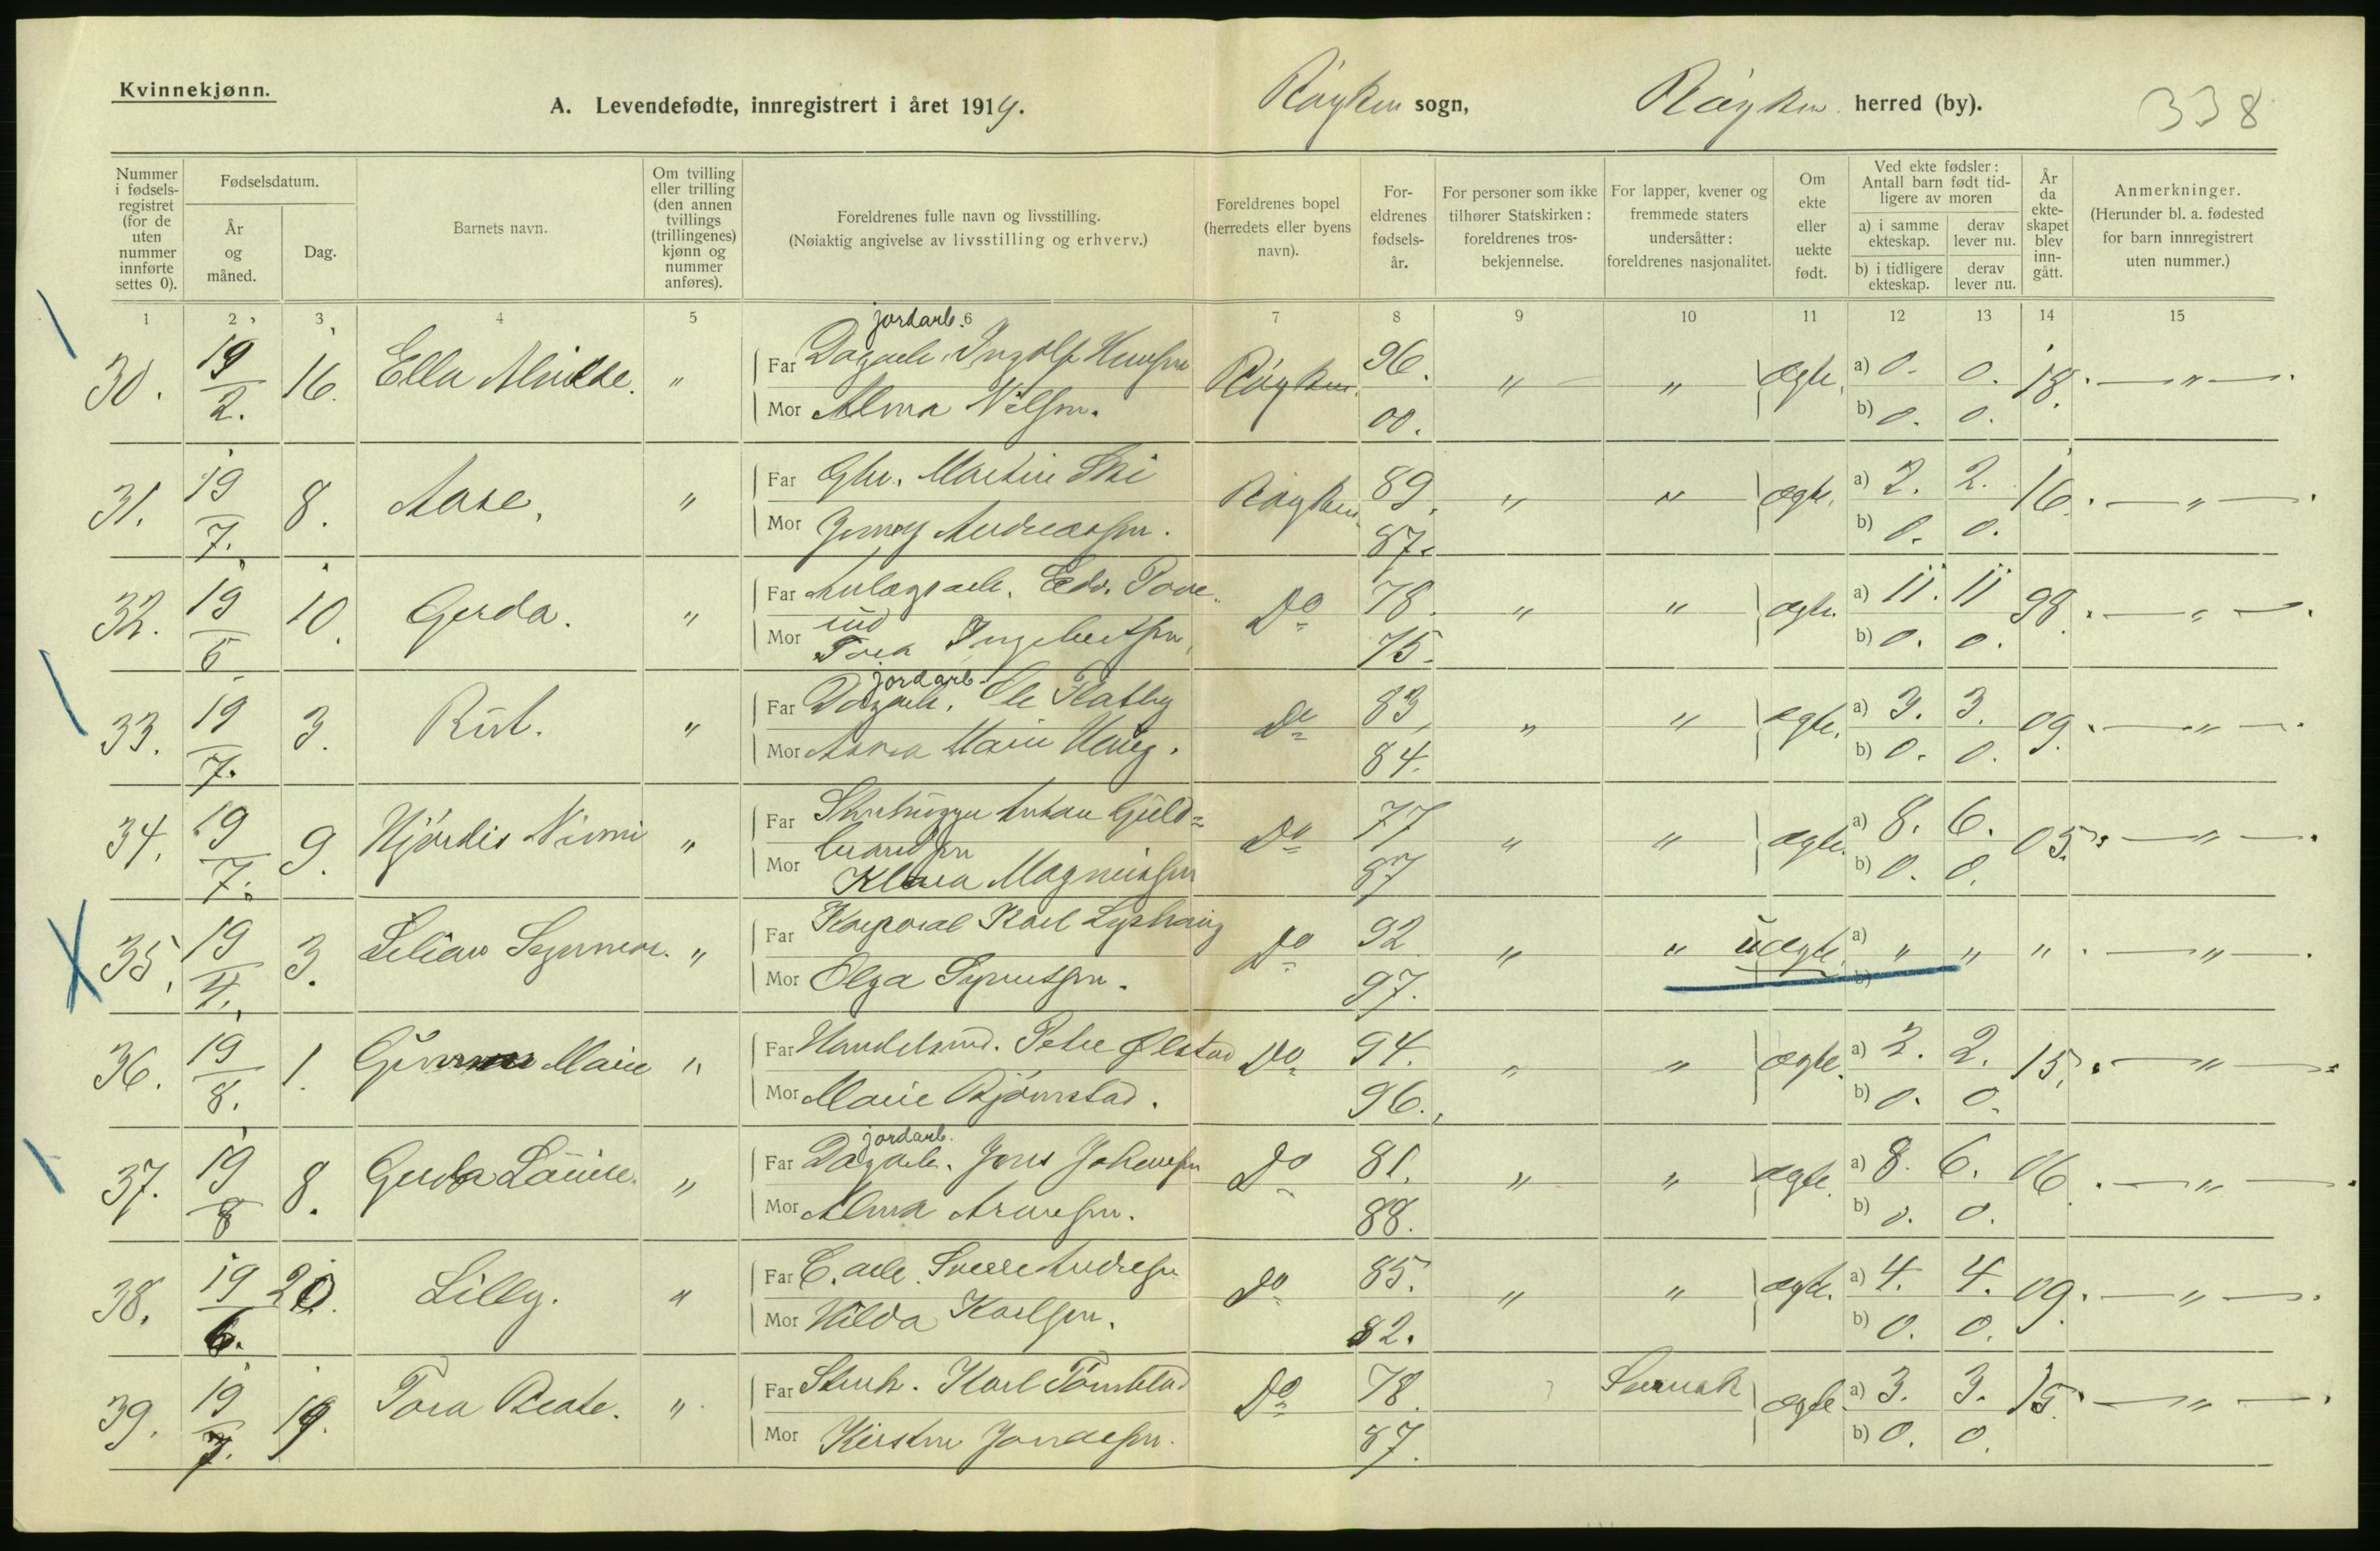 Kvinnekjønn.
A. Levendefødte, innregistrert i året 1919. Røyken sogn, Røyken herred (by). 338
Nummer i fødsels-registret (for de uten nummer innførte settes 0).
Fødselsdatum.
År og måned.
Dag.
Barnets navn.
Om tvilling eller trilling (den annen tvillings (trillingenes) kjønn og nummer anføres).
Foreldrenes fulle navn og livsstilling.
(Nøiaktig angivelse av livsstilling og erhverv.)
Foreldrenes bopel (herredets eller byens navn).
For-eldrenes fødsels-år.
For personer som ikke tilhører Statskirken: foreldrenes tros-bekjennelse.
For lapper, kvener og fremmede staters undersåtter: foreldrenes nasjonalitet.
Om ekte eller uekte født.
Ved ekte fødsler: Antall barn født tid-ligere av moren
a) i samme ekteskap.
derav lever nu.
b) i tidligere ekteskap.
derav lever nu.
År da ekte-skapet blev inn-gått.
Anmerkninger.
(Herunder bl. a. fødested for barn innregistrert uten nummer.)
1 2 3 4 5 6 7 8 9 10 11 12 13 14 15
jordarb.
30. 19/2. 16. Ella " Far Dagarb. Ingolf Røyken 96. " " ægte. a) 0. 0. 18. — " —
Mor Alma Nilsen. 00. b) 0. 0.
31. 19/7. 8. Aase. " Far Gbr. Martin Ski Røyken 89. " " ægte. a) 2. 2. 16. — " —
Mor Jenny Andreassen. 87. b) 0. 0.
32. 19/6 10. Gerda. " Far Anlægsarb. Edv. Do 78. " " ægte. a) 11. 11 98. — " —
Mor Ingebretsen 75. b) 0. 0.
jordarb.
33. 19/7. 3. Rut. " Far Dagarb. Ole Flatby Do 83. " " ægte. a) 3. 3. 09. — " —
Mor Anna Marie Haug. 84. b) 0. 0.
34. 19/7. 9. Hjørdis " Far Stenhugger Anton Guld=
brandsen Do 77 " " ægte. a) 8. 6. 05. — " —
Mor Klara Magnussen 87 b) 0. 0.
35. 19/4. 3. Lilian " Far Korporal Karl Do 92 " " uægte. a) " " " — " —
Mor Olga Syvertsen. 97. b)
36. 19/8. 1. Marie " Far Petter Ølstad Do 94. " " ægte. a) 2. 2. 15. — " —
Mor Marie Bjørnstad. 96. b) 0. 0.
jordarb.
37. 19/8 8. Gerda Louise. " Far Dagarb. Jens Johansen Do 81. " " ægte. a) 8. 6. 06. — " —
Mor Alma Arnesen. 88. b) 0. 0.
38. 19/6. 20. Lilly. " Far C. arb. Sverre Andresen Do 85. " " ægte. a) 4. 4. 09. — " —
Mor Hilda Karlsen. 82. b) 0. 0.
39. 19/7. 19. Tora Beate. " Far Karl Do 78. Svensk ægte a) 3. 3. 15. — " —
Mor Kirsten 87. b) 0. 0.